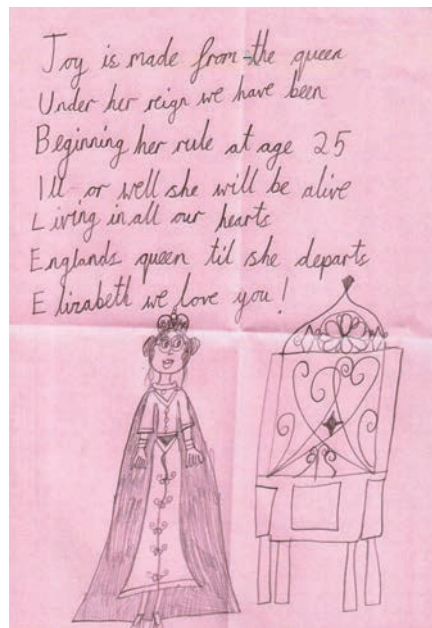 Joy is made from the queen
Under her reign we have been
Beginning her rule at age 25
Ill or well she will be alive
Living in all our hearts
Englands queen til she departs
Elizabeth we love you!